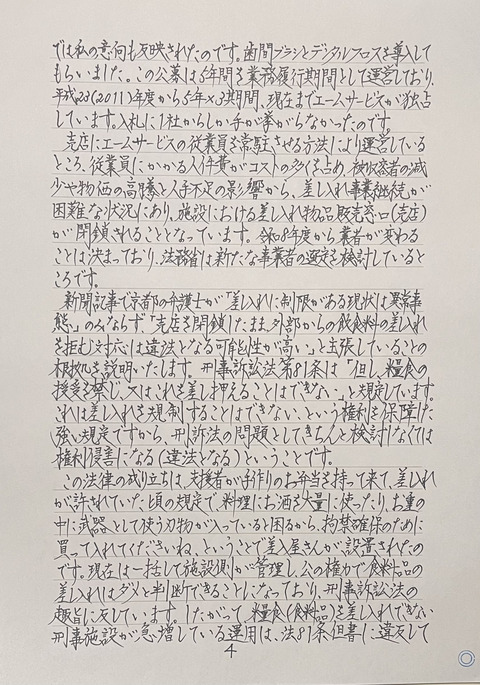 では私の意向も反映されたのです。歯間ブラシとデンタルフロスを導入して
もらいました。この公募は5年間を業務履行期間として運営しており、
平成23(2011)年度から5年×3期間、現在までエームサービスが独占
しています。入札に1社からしか手が挙がらなかったのです。
売店にエームサービスの従業員を常駐させる方法により運営している
ところ、従業員にかかる人件費がコストの多くを占め、被収容者の減
少や物価の高騰と人手不足の影響から、差し入れ事業継続が
困難な状況にあり、施設における差し入れ物品販売窓口(売店)
が閉鎖されることとなっています。令和8年度から業者が変わる
ことは決まっており、法務省は新たな事業者の選定を検討していると
ころです。
新聞記事で京都の弁護士が「差し入れに制限がある現状は異常事
態」のみならず「売店を閉鎖したまま、外部からの飲食料の差し入れ
を拒む対応は違法となる可能性が高い」と主張していることの
根拠を説明いたします。刑事訴訟法第81条は「但し、糧食の
授受を禁じ、又はこれを差し押えることはできない」と規定しています。
これは差し入れを規制することはできない、という権利を保障した
強い規定ですから、刑訴法の問題としてきちんと検討しなくては
権利侵害になる(違法となる)ということです。
この法律の成り立ちは、支援者が手作りのお弁当を持って来て、差し入れ
が許されていた頃の規定で、料理にお酒を大量に使ったり、お重の
中に武器として使う刃物が入っていると困るから、拘禁確保のために
買って入れてくださいね、ということで差入屋さんが設置されたの
です。現在は一括して施設側が管理し、公の権力で食料品の
差し入れはダメと判断できることになっており、刑事訴訟法の
趣旨に反しています。したがって、糧食(食料品)を差し入れできない
刑事施設が急増している運用は、法81条但書に違反して
4